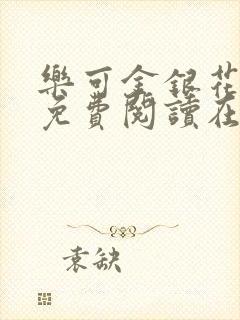 樂可金銀花
免費閱讀在
袁缺